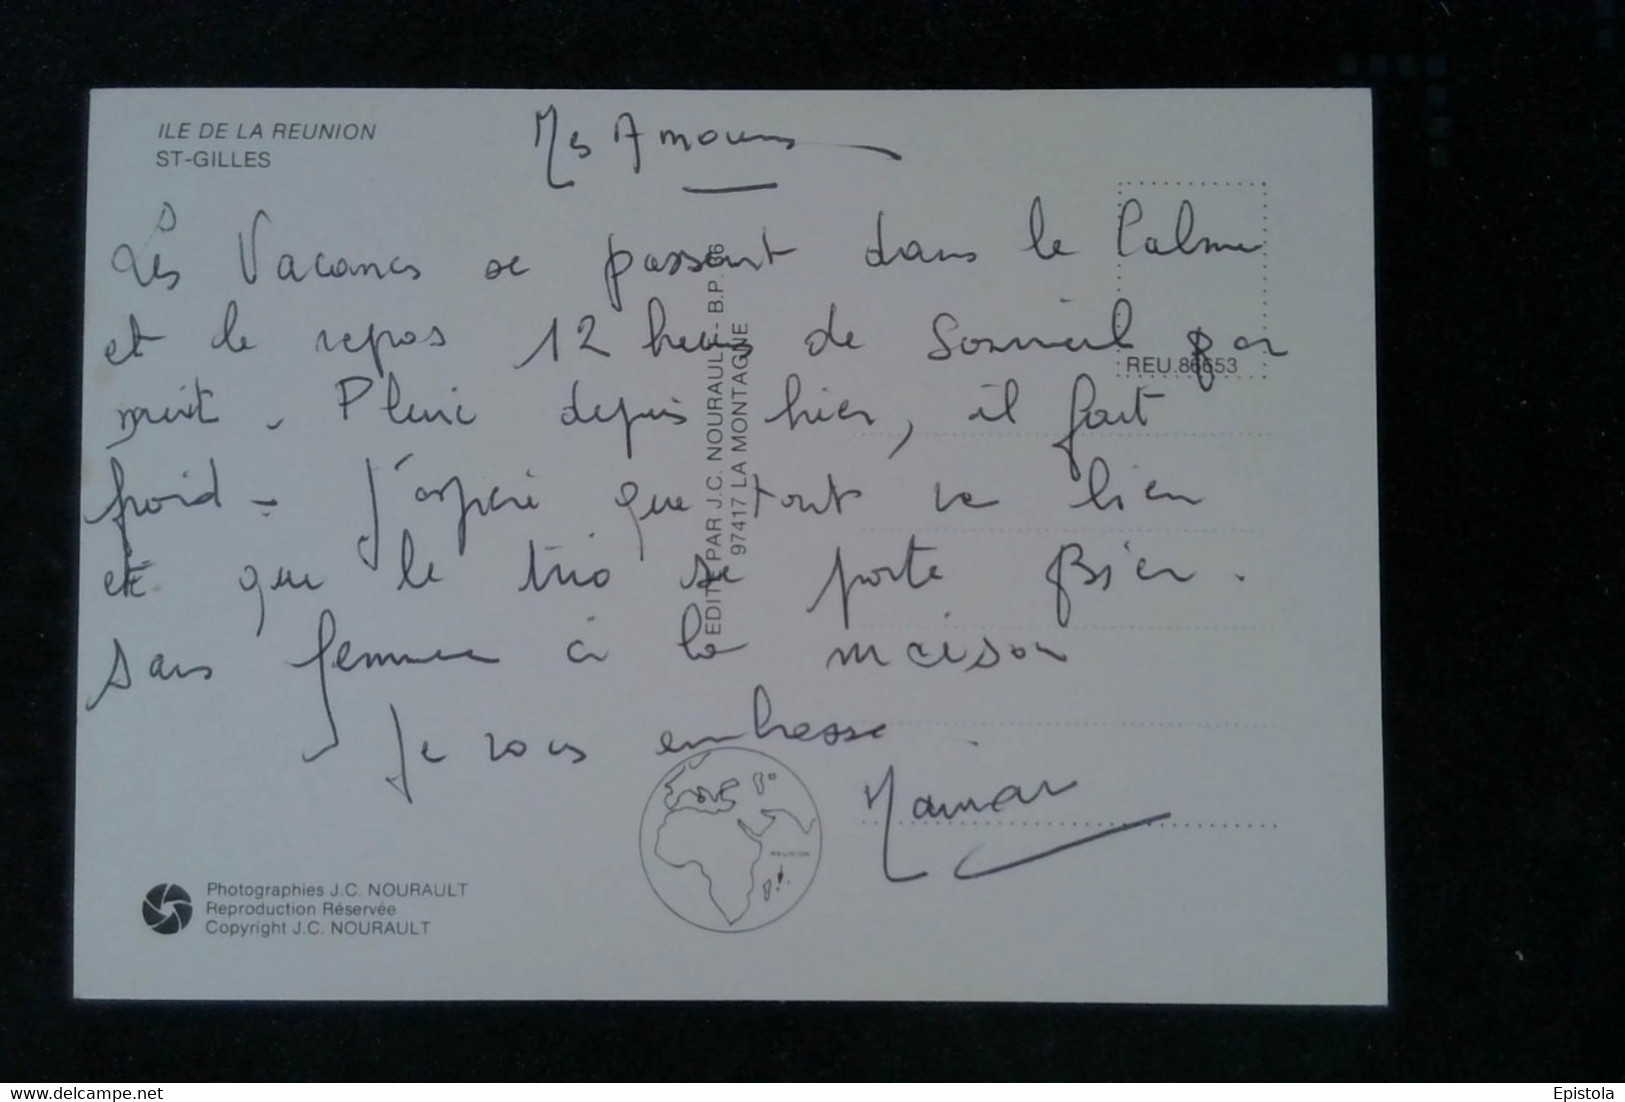 ILE DE LA REUNION
ST-GILLES
Mes Amours
Les Vacances se passent dans le Calme
et le repos 12 heures de Sommeil par
nuit. Pluie depuis hier, il fait
froid - J'espère que tout va bien
et que le trio se porte Bien.
sans femme à la maison
Je vous embrasse
Maman
REU.86653
EDITE PAR J.C. NOURAULT - B.P. 66
97417 LA MONTAGNE
REUNION
Photographies J.C. NOURAULT
Reproduction Réservée
Copyright J.C. NOURAULT
delcampe.net
Epistola